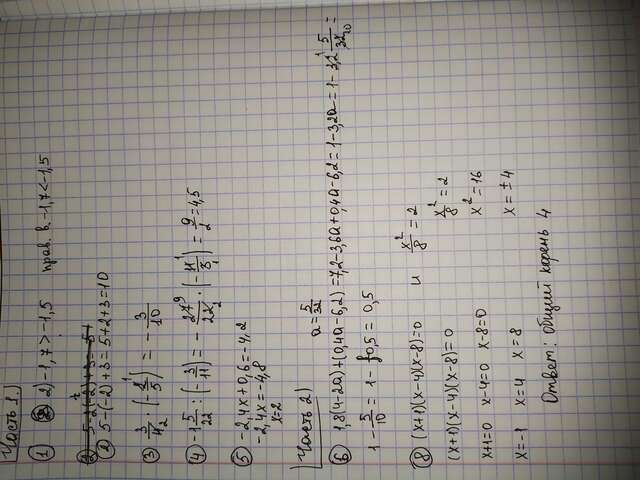 Часть 1.
① 2) -1,7 > -1,5 прав. в. -1,7 < -1,5
② 5-(-2)+3 = 5+2+3 = 10
③ 3/4 · (-2/5) = -3/10
④ -1 5/22 : (-3/11) = -27/22 · (-11/3) = 9/2 = 4,5
⑤ -2,4x+0,6 = -4,2
-2,4x = -4,8
x=2
Часть 2) a = 5/32
⑥ 1,8(4-2a)+(0,4a-6,2) = 7,2-3,6a+0,4a-6,2 = 1-3,2a = 1-3,2 · 5/32 =
1 - 5/10 = 1 - 0,5 = 0,5
⑧ (x+1)(x-4)(x-8)=0 и x²/8 = 2
(x+1)(x-4)(x-8)=0 x²/8 = 2
x+1=0 x-4=0 x-8=0 x²=16
x=-1 x=4 x=8 x=±4
Ответ: общий корень 4